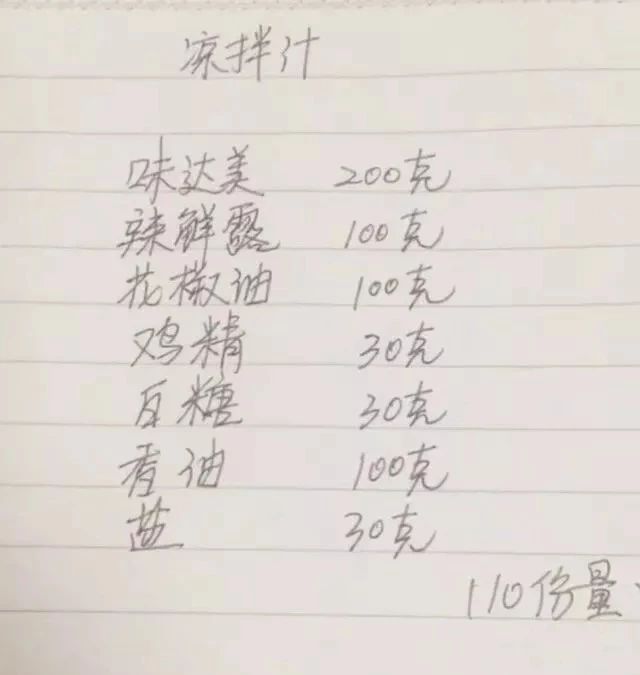 凉拌汁
味达美 200克
辣鲜露 100克
花椒油 100克
鸡精 30克
白糖 30克
香油 100克
盐 30克
110份量